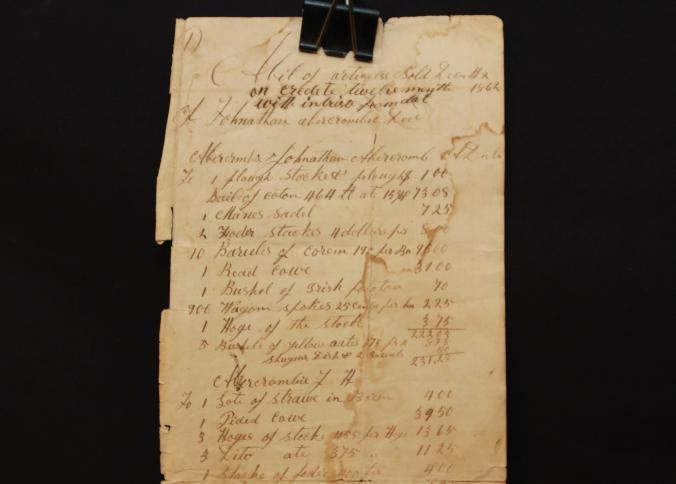 1)
A bil of articles Sold Decm
on credete twelve months 1862
with intrus from dat
of Johnathan abercrombie Dec
Abercrombie Johnathan Abercromb
To 1 plough stocke & plough 1 00
Bail of coton 464 at 15 73 08
1 Manes Sadel 7 25
2 Foder stackes 4 dollars per 8 00
10 Bareles of corem per 96 00
1 Read cowe 31 00
1 Bushel of Irish potatoe 70
900 Wagom spokes 25 Cen per hu 2 25
1 Hoge of the stock 3 75
5 Bushels of yellow oates 175 per
Shugar Dish &
231,25
Abercrombie J H
To 1 Lote of strawe in Barem 4 00
1 Pided Cowe 39 50
3 Hoges of stocke 455 per Hoge 13 65
3 Dito ate 375 11 25
1 Stacke of foder 400 per 4 00